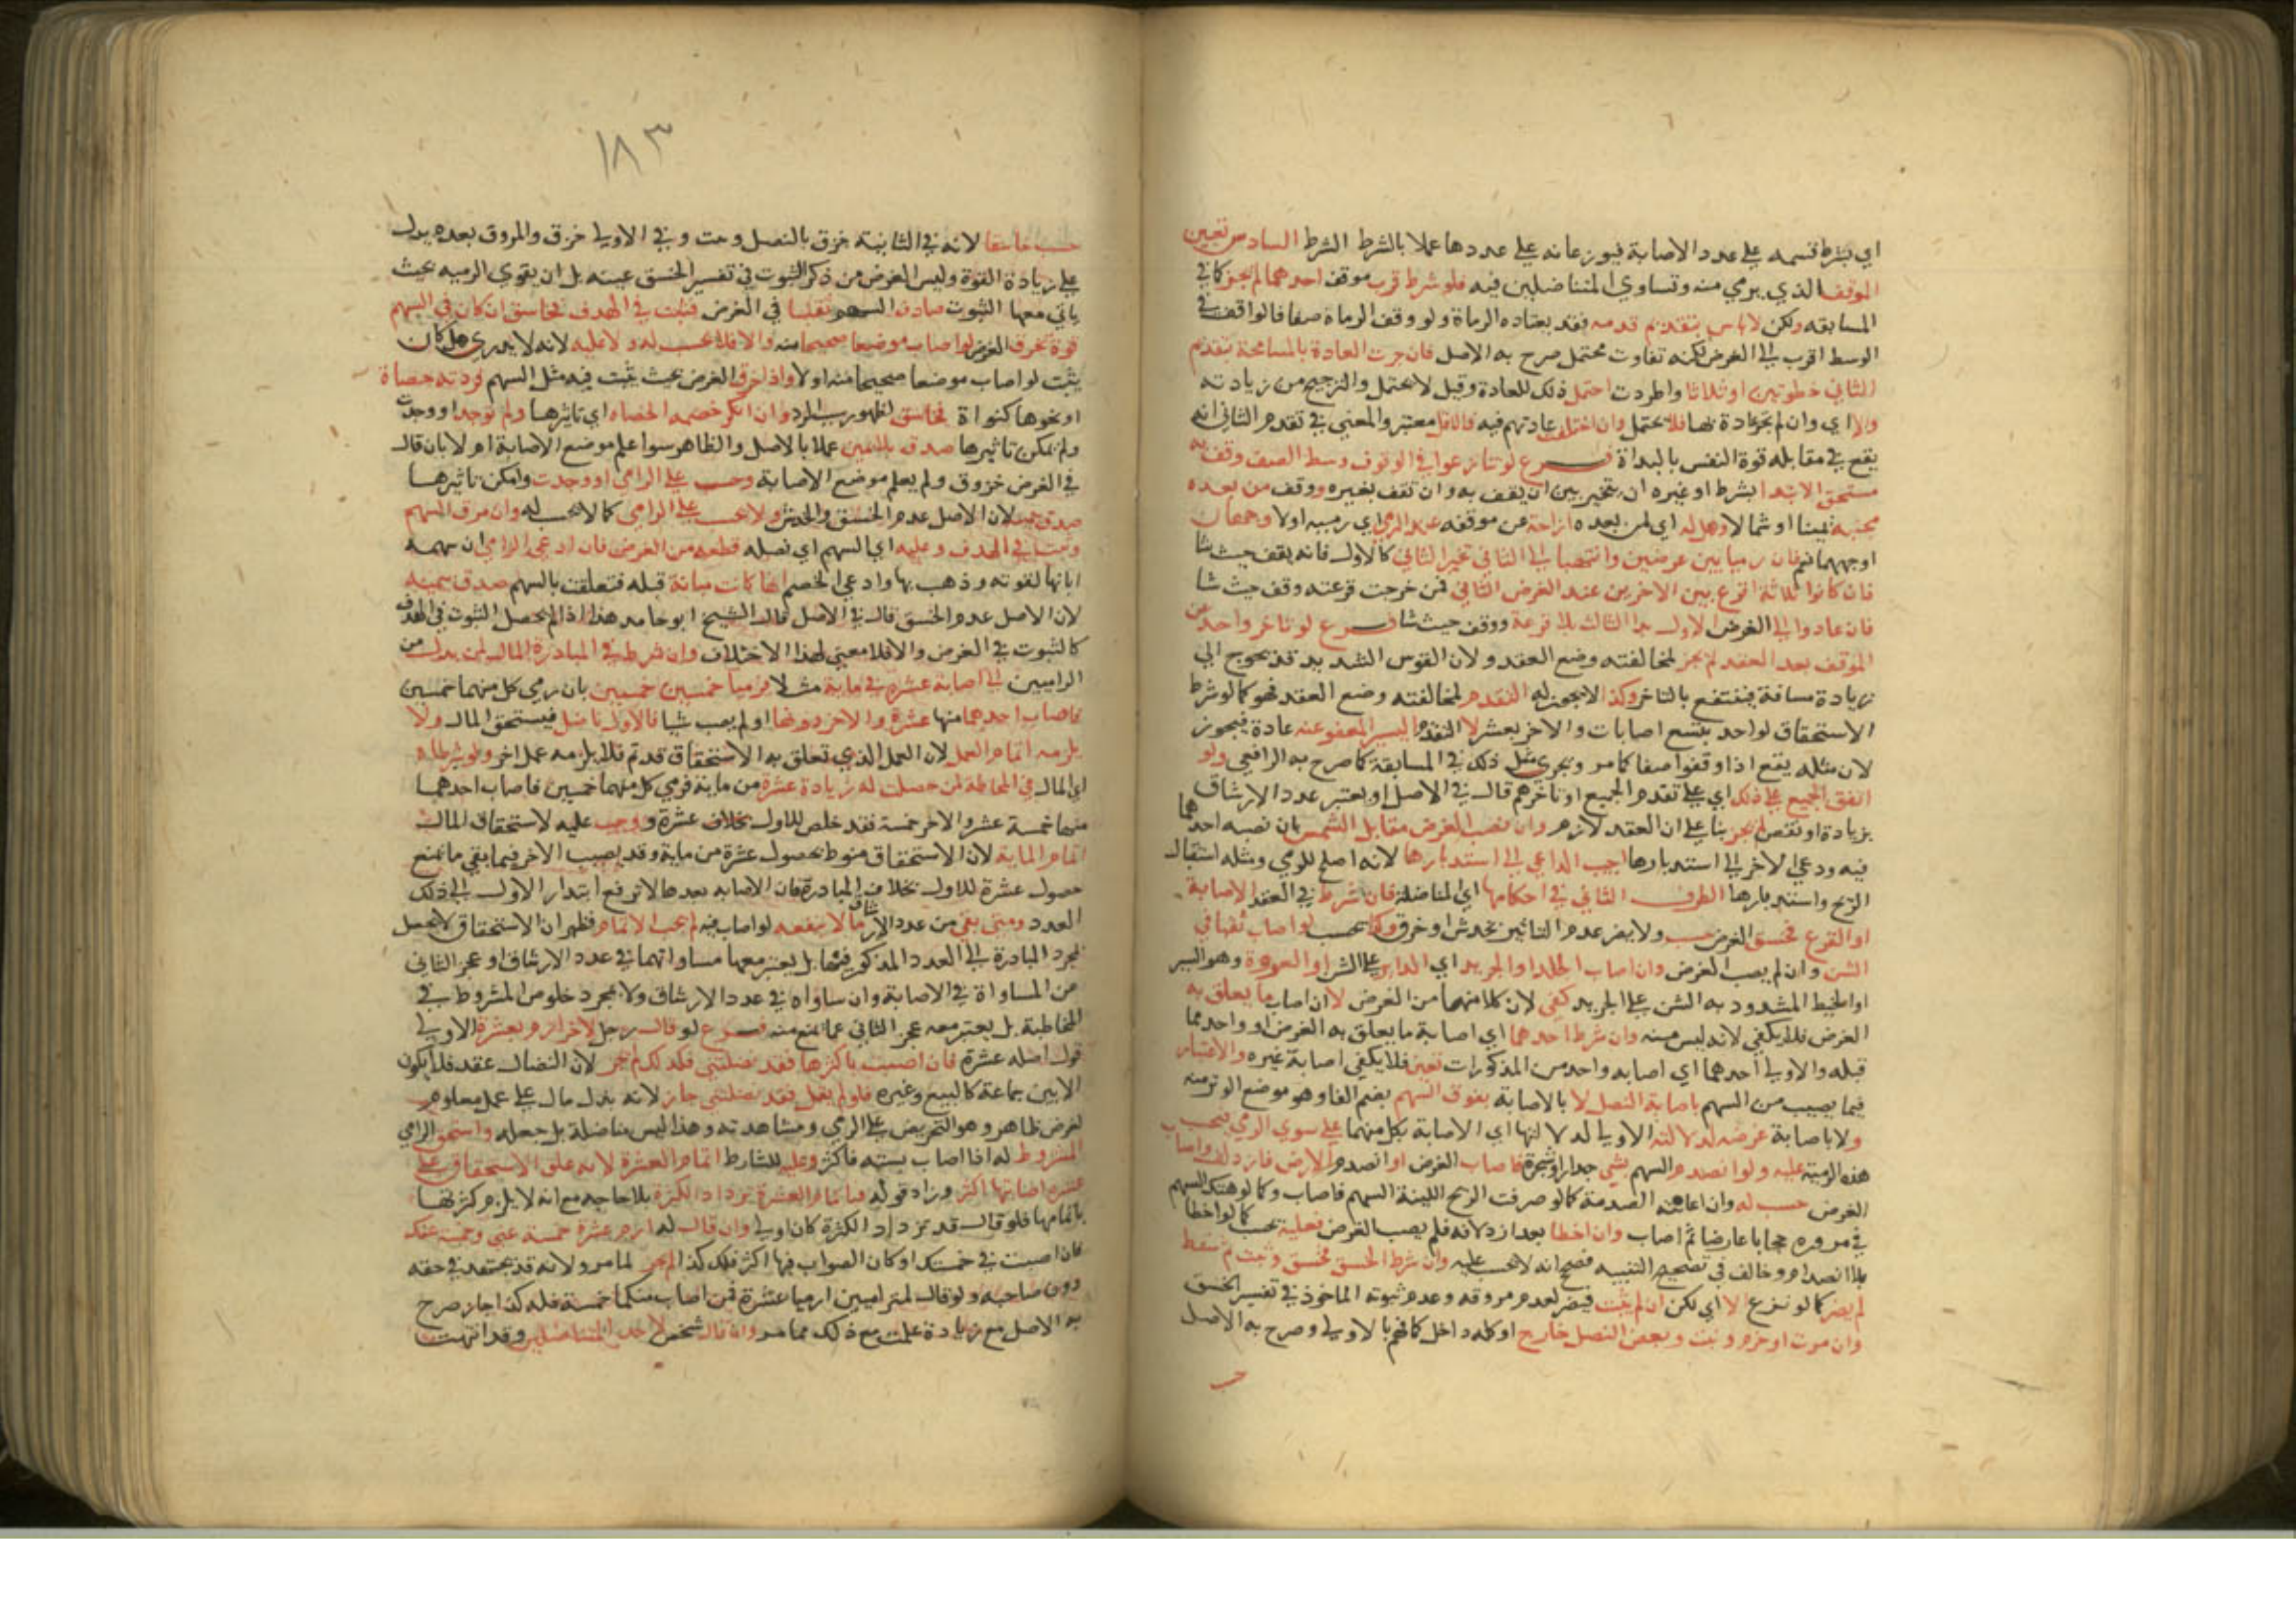 اي بشرط قسمه علي عدد الاصابة فيوزعانه علي عددها عملا بالشرط الشرط السادس تعيين
الموقف الذي يرمي منه وتساوي المتناضلين فيه فلو شرط قرب موقف احدهما لم يجز كما في
المسابقه ولكن لا باس بتقديم قدمه فقد يعتاده الرماة ولو وقف الرماة صفا فالواقف في
الوسط اقرب الي الغرض لكنه تفاوت محتمل صرح به الاصل فان جرت العادة بالمسامحة بتقدم
الثاني خطوتين او ثلاثا واطردت احتمل ذلك للعادة وقيل لا يحتمل والترجيح من زيادته
والا اي وان لم تجر عادة بها فلا يحتمل وان اختلفت عادتهم فيه فالاقل معتبر والمعني في تقدم الثاني انه
يقع في مقابله قوة النفس بالبداة فرع لو تنازعوا في الوقوف وسط الصف وقف به
مستحق الابتدا بشرط او غيره ان يتخير بين ان يقف به وان يقف بغيره ووقف من بعده
بجنبه يمينا او شمالا وهل له اي لمن بعده ازاحته عن موقفه عند الرمي اي رميه اولا وجهان
اوجههما نعم فان رميا بين غرضين وانتهيا الي الثاني تخير الثاني كالاول فانه يقف حيث شا
فان كانوا ثلاثة اقرع بين الاخرين عند الغرض الثاني فمن خرجت قرعته وقف حيث شا
فان عادوا الي الغرض الاول بدا الثالث بلا قرعة ووقف حيث شا فرع لو تاخر واحد عن
الموقف بعد العقد لم يجز لمخالفته وضع العقد ولان القوس الشديد قد يحوج الي
زيادة مسافة فينتفع بالتاخر وكذا لا يجوز له التقدم لمخالفته وضع العقد فهو كما لو شرط
الاستحقاق لواحد بتسع اصابات والاخر بعشر لا التقدم اليسير المعفو عنه عادة فيجوز
لان مثله يقع اذا وقفوا صفا كما مر ويجري مثل ذلك في المسابقة كما صرح به الرافعي ولو
اتفق الجميع علي ذلك اي علي تقدم الجميع او تاخرهم قال في الاصل او بعتبر عدد الارشاق
بزيادة او نقص لم يجز بنا علي ان العقد لازم وان نصب الغرض مقابل الشمس بان نصبه احدهما
فيه ودعي الاخر الي استدبارها اجيب الداعي الي استدبارها لانه اصلح للرمي ومثله استقبال
الريح واستدبارها الطرف الثاني في احكامها اي المناضلة فان شرط في العقد الاصابة
او القرع فخسق الغرض حسب ولا يضر عدم التاثير بخدش او خرق وكذا يحسب لو اصاب ثقبا في
الشن وان لم يصب الغرض وان اصاب الجلد او الجريد اي الداير علي الشن او العروة وهو السير
او الخيط المشدود به الشن علي الجريد كفي لان كلا منهما من الغرض لا ان اصاب ما يعلق به
الغرض فلا يكفي لانه ليس منه وان شرط احدهما اي اصابة ما يعلق به الغرض او واحد مما
قبله والاولي احدها اي اصابه واحد من المذكورات تعين فلا يكفي اصابة غيره والاعتبار
فيما يصيب من السهم باصابة النصل لا بالاصابة بفوق السهم بضم الفا وهو موضع الوتر منه
ولا باصابة عرضه لدلالته الاولي لدلالتها اي الاصابة بكل منهما علي سوي الرمي فيحسب
هذه الرمية عليه ولو انصدم السهم بشي جدار او شجرة فاصاب الغرض او انصدم الارض فازدلف واصاب
الغرض حسب له وان اعانته الصدمة كما لو صرفت الريح اللينة السهم فاصاب وكما لو هتك السهم
في مروره حجابا عارضا ثم اصاب وان اخطا بعد ازدلافه فلم يصب الغرض فعليه يحسب كما لو اخطا
بلا انصدام وخالف في تصحيح التنبيه فصحح انه لا يحسب عليه وان شرط الخسق فخسق وثبت ثم سقط
لم يضر كما لو نزع لا اي لكن ان لم يثبت فيضر لعدم مروقه وعدم ثبوته الماخوذ في تفسير الخسق
وان مرت او خرم وثبت وبعض النصل خارج او كله داخل كما فهم بالاولي وصرح به الاصل
حسب
١٨٣
حسب خاسقا لانه في الثانية خزق بالنصل وثبت وفي الاولي خزق والمروق بعده يدل
علي زيادة القوة وليس الغرض من ذكر الثبوت في تفسير الخسق عينه بل ان يقوي الرميه بحيث
ياتي معها الثبوت صادف السهم ثقبا في الغرض فثبت في الهدف فخاسق ان كان في السهم
قوة تخرق الغرض لو اصاب موضعا صحيحا منه والا فلا يحسب له ولا عليه لانه لا يدري هل كان
يثبت لو اصاب موضعا صحيحا منه اولا واذا خرق الغرض بحيث يثبت فيه مثل السهم فردته حصاة
او نحوها كنواة فخاسق لظهور سبب الرد وان انكر خصمه الحصاه اي تاثيرها ولم توجد او وجدت
ولم يمكن تاثيرها صدق باليمين عملا بالاصل والظاهر سوا علم موضع الاصابة ام لا بان قال
في الغرض خزوق ولم يعلم موضع الاصابة وحسب علي الرامي او وجدت وامكن تاثيرها
صدق لان الاصل عدم الخسق والخدش ولا يحسب علي الرامي كما لا يحسب له وان مرق السهم
وثبت في الهدف وعليه اي السهم اي نصله قطعه من الغرض فان ادعي الرامي ان سهمه
ابانها لقوته وذهب بها وادعي الخصم انها كانت مبانة قبله فتعلقت بالسهم صدق بيمينه
لان الاصل عدم الخسق قال في الاصل قال الشيخ ابو حامد هذا اذا لم يحصل الثبوت في الهدف
كالثبوت في الغرض والا فلا معني لهذا الاختلاف وان شرط في المبادرة المال لمن بدر من
الراميين الي اصابة عشرة في ماية مثلا فرميا خمسين خمسين بان رمي كل منهما خمسين
فاصاب احدهما منها عشرة والاخر دونها او لم يصب شيا فالاول ناضل فيستحق المال ولا
يلزمه اتمام العمل لان العمل الذي تعلق به الاستحقاق قد تم فلا يلزمه عمل اخر ولو شرطاه
اي المال في المحاطة لمن حصلت له زيادة عشرة من ماية فرمي كل منهما خمسين فاصاب احدهما
منها خمسة عشر والاخر خمسة فقد خلص للاول بخلاف عشرة ووجب عليه لاستحقاق المال
اتمام الماية لان الاستحقاق منوط بحصول عشرة من ماية وقد يصيب الاخر فيما بقي ما يمنع
حصول عشرة للاول بخلاف المبادرة فان الاصابه بعدها لا ترفع ابتدار الاول الي ذلك
العدد ومتي بقي من عدد الارشاق ما لا ينفعه لو اصاب فيه لم يجب الاتمام فظهر ان الاستحقاق لا يحصل
بمجرد المبادرة الي العدد المذكور فيها بل يعتبر معها مساواتهما في عدد الارشاق او عجز الثاني
من المساواة في الاصابة وان ساواه في عدد الارشاق ولا بمجرد خلوص المشروط في
المحاطبة بل يعتبر معه عجز الثاني عما يمنع منه فرع لو قال رجل لاخر ارم بعشرة الاولي
قول اصله عشرة فان اصبت باكثرها فقد نضلتني فلك كذا لم يجز لان النضال عقد فلا يكون
الا بين جماعة كالبيع وغيره فلو لم يقل فقد نضلتني جاز لانه بذل مال علي عمل معلوم
لغرض ظاهر وهو التحريض علي الرمي ومشاهدته وهذا ليس مناضلة بل جعاله واستحق الرامي
المشروط له اذا اصاب بسته فاكثر وعليه للشارط اتمام العشرة لانه علق الاستحقاق علي
عشرة اصابتها اكثر وزاد قوله فباتمام العشرة تزداد الكثرة بلا حاجه مع انه لا يلزم كثرتها
باتمامها فلو قال قد تزداد الكثرة كان اولي وان قال له ارم عشرة خمسة عني وخمسة عنك
فان اصبت في خمستك او كان الصواب فيها اكثر فلك كذا لم يجز لما مر ولانه قد يجتهد في حقه
دون صاحبه ولو قال لمتراميين ارميا عشرة فمن اصاب منكما خمسة فله كذا جاز صرح
به الاصل مع زيادة علمت مع ذلك مما مر وان قال شخص لاحد المتناضلين وقد انتهت